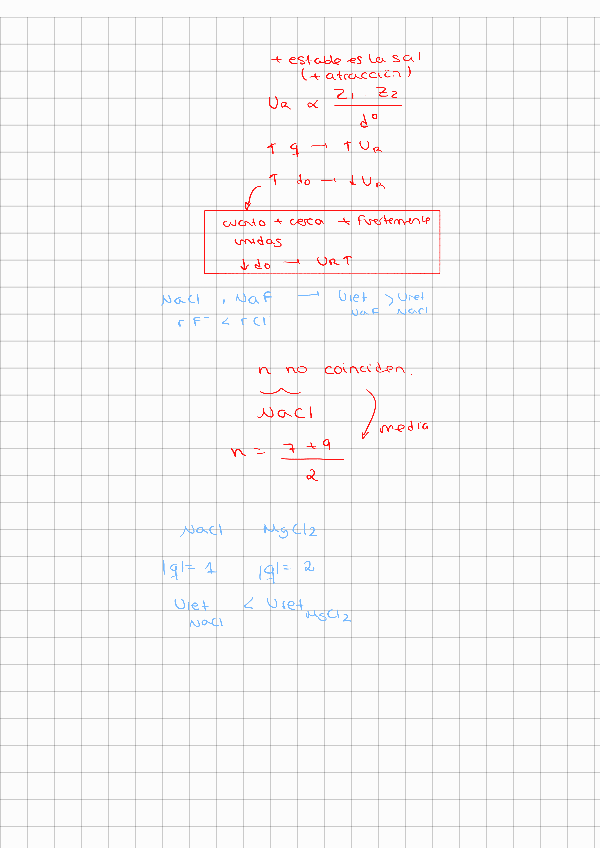 + estable es la sal
(+ atracción)
UR ∝ Z1 Z2 / d°
↑ q → ↑ UR
↑ do → ↓ UR
cuanto + cerca + fuertemente
unidas
↓ do → UR↑
NaCl , NaF → Uret NaF > Uret NaCl
r F⁻ < r Cl
n no coinciden.
NaCl
media
n = 7 + 9 / 2
NaCl MgCl2
|q|= 1 |q|= 2
Uret NaCl < Uret MgCl2